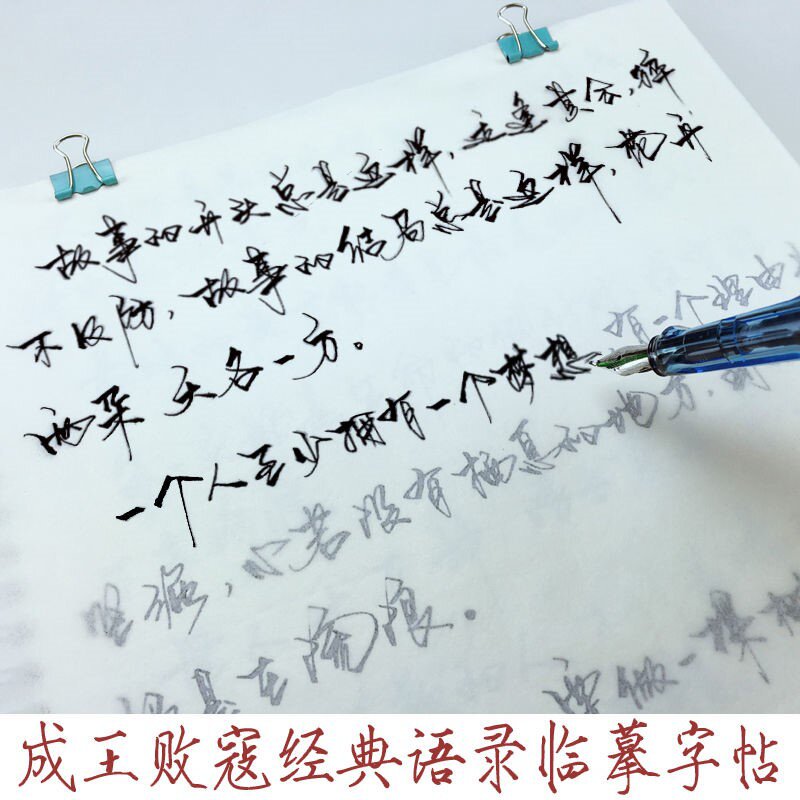 故事的开头总是这样，适逢其会，猝
不及防，故事的结局总是这样，花开
两朵 天各一方。
一个人至少拥有一个梦想 有一个理由
坚强，心若没有栖息的地方，到
是在流浪。 要做一棵树
成王败寇经典语录临摹字帖